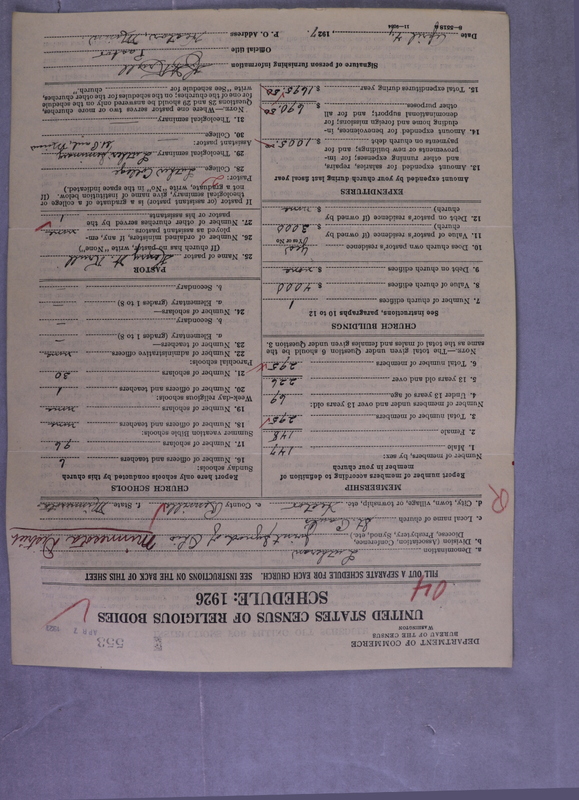 DEPARTMENT OF COMMERCE
BUREAU OF THE CENSUS
WASHINGTON
553
APR 7 1927
UNITED STATES CENSUS OF RELIGIOUS BODIES
SCHEDULE: 1926
04
FILL OUT A SEPARATE SCHEDULE FOR EACH CHURCH. SEE INSTRUCTIONS ON THE BACK OF THIS SHEET
a. Denomination Lutheran
b. Division (Association, Conference, Diocese, Presbytery, Synod, etc.) Joint Synod of Ohio Minnesota District
c. Local name of church St. Paul's
d. City, town, village, or township, etc.
e. County
f. State Minnesota
MEMBERSHIP
Report number of members according to definition of
member in your church
Number of members, by sex:
1. Male 147
2. Female 148
3. Total number of members 295
Number of members under and over 13 years old:
4. Under 13 years of age 69
5. 13 years old and over 226
6. Total number of members 295
NOTE.—The total given under Question 6 should be the
same as the total of males and females given under Question 3.
CHURCH BUILDINGS
See instructions, paragraphs 10 to 12
7. Number of church edifices 1
8. Value of church edifices $ 4000
9. Debt on church edifices $ none
10. Does church own pastor's residence yes
(Yes or No)
11. Value of pastor's residence (if owned by
church) $ 3000
12. Debt on pastor's residence (if owned by
church) $ none
EXPENDITURES
Amount expended by your church during last fiscal year
13. Amount expended for salaries, repairs,
and other running expenses; for im-
provements or new buildings; and for
payments on church debt $ 1005
14. Amount expended for benevolences, in-
cluding home and foreign missions; for
denominational support; and for all
other purposes $ 690.50
15. Total expenditures during year $ 1695.50
CHURCH SCHOOLS
Report here only schools conducted by this church
Sunday schools:
16. Number of officers and teachers 6
17. Number of scholars 96
Summer vacation Bible schools:
18. Number of officers and teachers none
19. Number of scholars none
Week-day religious schools:
20. Number of officers and teachers 1
21. Number of scholars 30
Parochial schools:
22. Number of administrative officers none
23. Number of teachers—
a. Elementary (grades 1 to 8) —
b. Secondary —
24. Number of scholars—
a. Elementary (grades 1 to 8) —
b. Secondary —
PASTOR
25. Name of pastor
(If church has no pastor, write "None")
26. Number of ordained ministers, if any, em-
ployed as assistant pastors none
27. Number of other churches served by the
pastor or his assistants 1
If pastor (or assistant pastor) is a graduate of a college or
theological seminary, give name of institution below. (If
not a graduate, write "No" in the space indicated.)
Pastor:
28. College Luther College
29. Theological seminary Luther Seminary
St. Paul, Minn
Assistant pastor:
30. College
31. Theological seminary
NOTE.—Where one pastor serves two or more churches,
Questions 28 and 29 should be answered only on the schedule
for one of the churches; on the schedules for the other churches,
write "See schedule for church."
Signature of person furnishing information
Official title Pastor
Date April 4, 1927
P. O. Address